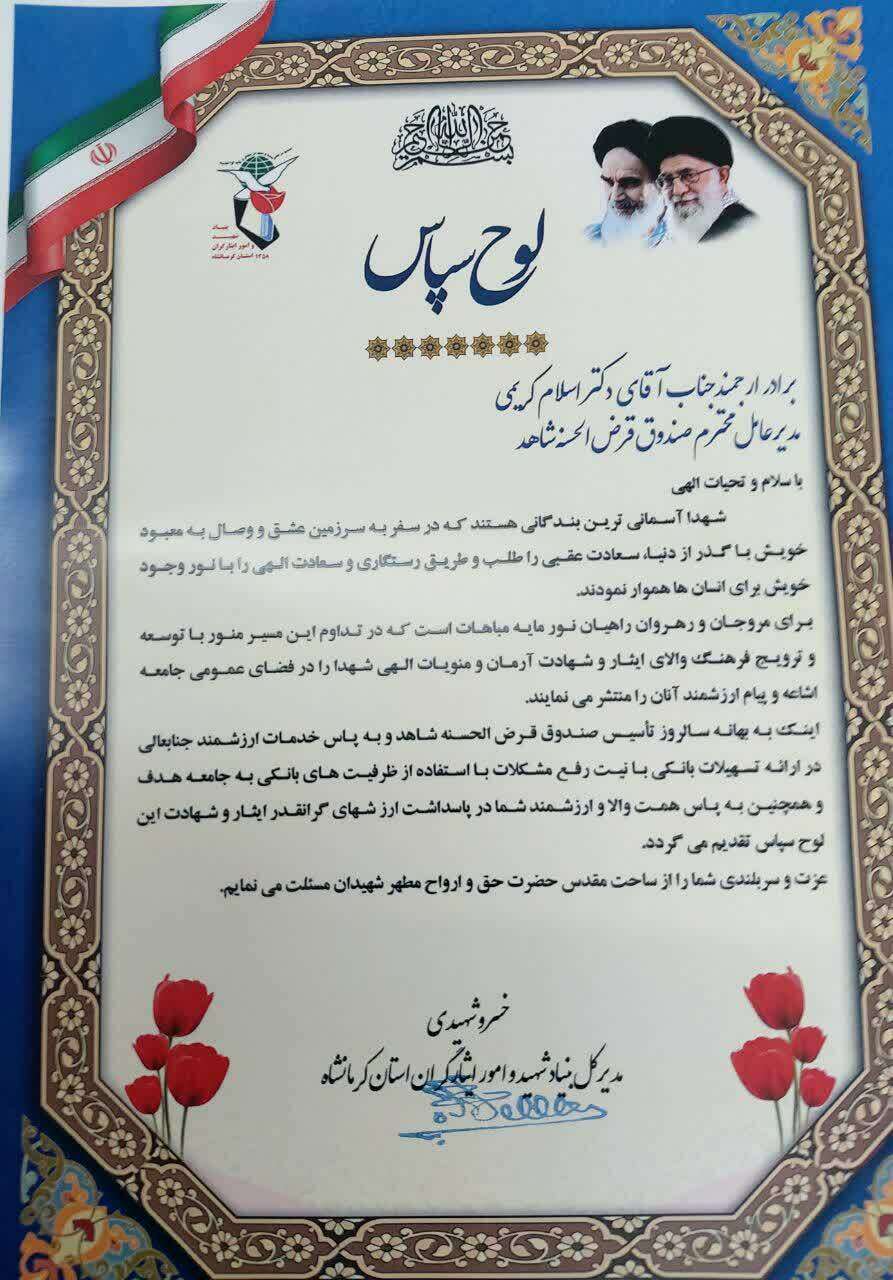 بسم الله الرحمن الرحیم
بنیاد
شهید
و امور ایثارگران
۱۳۵۸ استان کرمانشاه
لوح سپاس
برادر ارجمند جناب آقای دکتر اسلام کریمی
مدیرعامل محترم صندوق قرض الحسنه شاهد
با سلام و تحیات الهی
شهدا آسمانی ترین بندگانی هستند که در سفر به سرزمین عشق و وصال به معبود
خویش با گذر از دنیا، سعادت عقبی را طلب و طریق رستگاری و سعادت الهی را با نور وجود
خویش برای انسان ها هموار نمودند.
برای مروجان و رهروان راهیان نور مایه مباهات است که در تداوم این مسیر منور با توسعه
و ترویج فرهنگ والای ایثار و شهادت آرمان و منویات الهی شهدا را در فضای عمومی جامعه
اشاعه و پیام ارزشمند آنان را منتشر می نمایند.
اینک به بهانه سالروز تأسیس صندوق قرض الحسنه شاهد و به پاس خدمات ارزشمند جنابعالی
در ارائه تسهیلات بانکی با نیت رفع مشکلات با استفاده از ظرفیت های بانکی به جامعه هدف
و همچنین به پاس همت والا و ارزشمند شما در پاسداشت ارزشهای گرانقدر ایثار و شهادت این
لوح سپاس تقدیم می گردد.
عزت و سربلندی شما را از ساحت مقدس حضرت حق و ارواح مطهر شهیدان مسئلت می نمایم.
خسرو شهیدی
مدیرکل بنیاد شهید و امور ایثارگران استان کرمانشاه